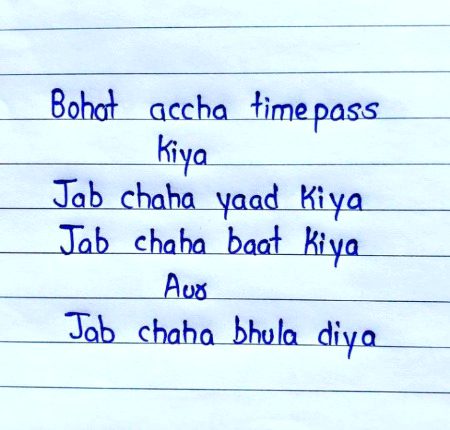 Bohot accha timepass
Kiya
Jab chaha yaad Kiya
Jab chaha baat Kiya
Aur
Jab chaha bhula diya